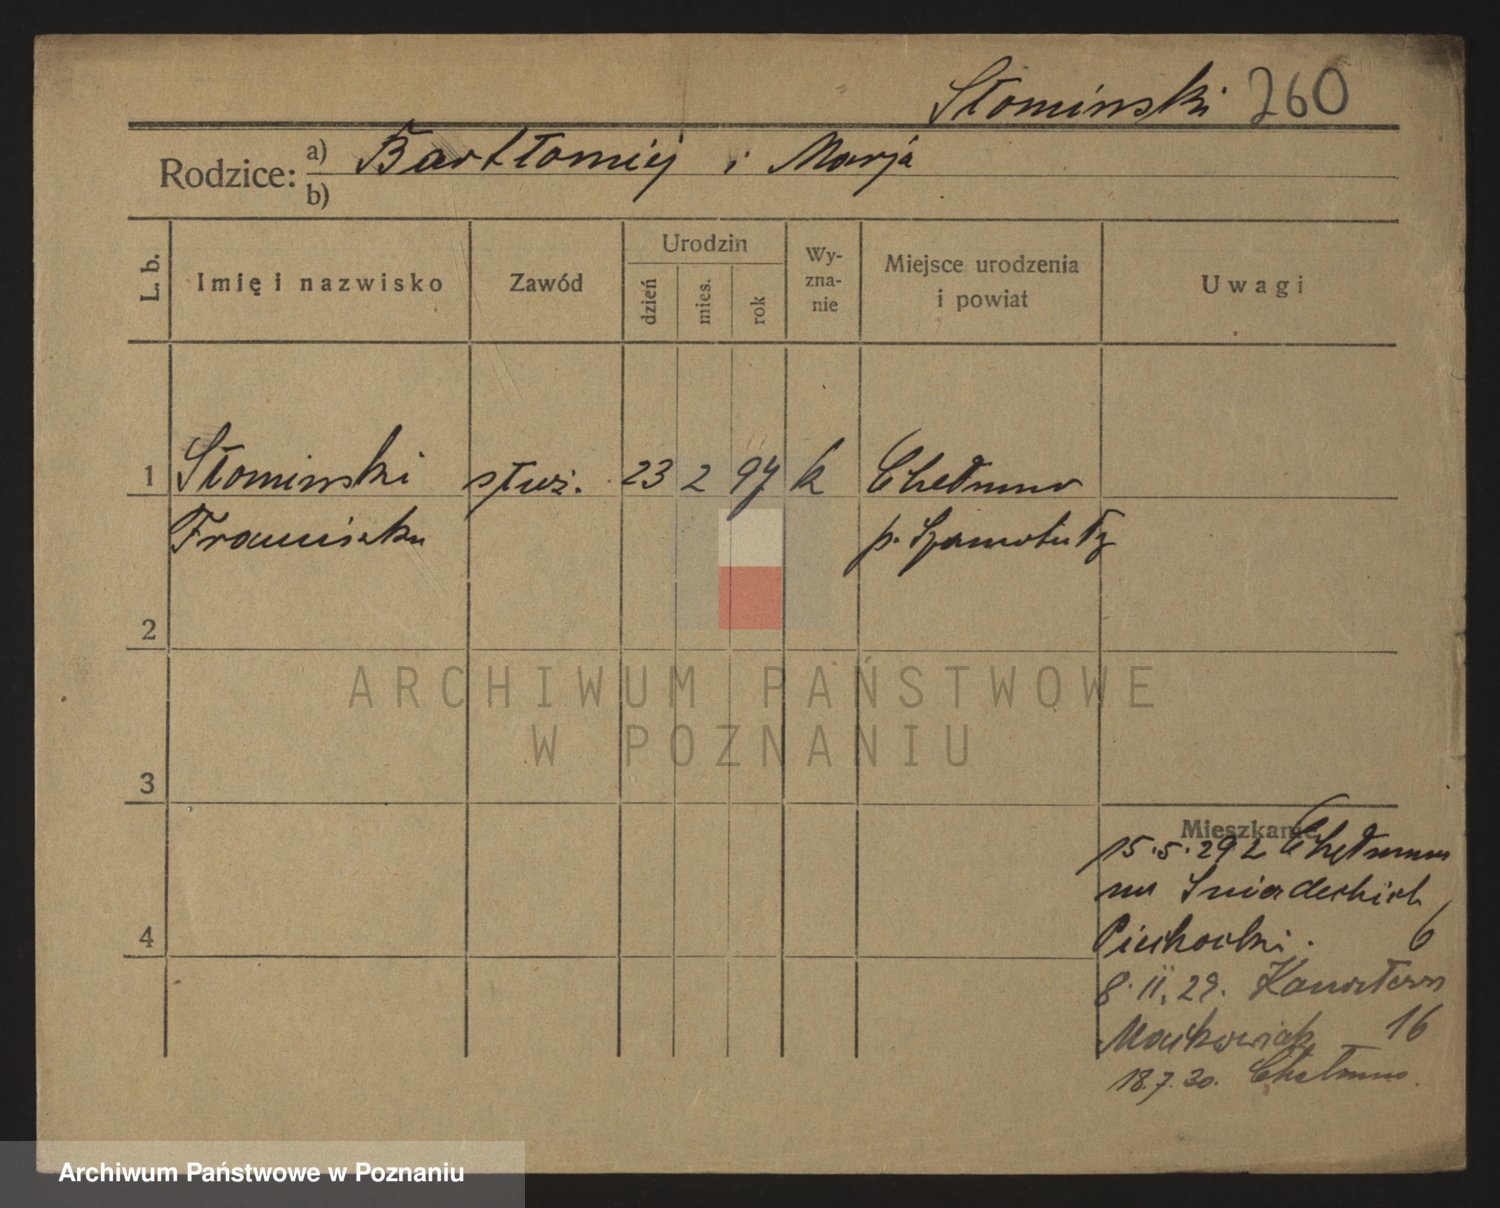 Słominski 260
Rodzice: a) Bartłomiej i Marja
b)
L. b.
Imię i nazwisko
Zawód
Urodzin
dzień
mies.
rok
Wy-
zna-
nie
Miejsce urodzenia
i powiat
Uwagi
1 Słominski służ. 23 2 97 k Chełmno
Franciszka p. Szamotuły
2
3
4
Mieszkanie
15.5.29 z Chełmna
na Sniadeckich
Piechocki. 6
8.11.29. Kanałowa
Maćkowiak 16
18.7.30. Chełmno.
ARCHIWUM PAŃSTWOWE
W POZNANIU
Archiwum Państwowe w Poznaniu